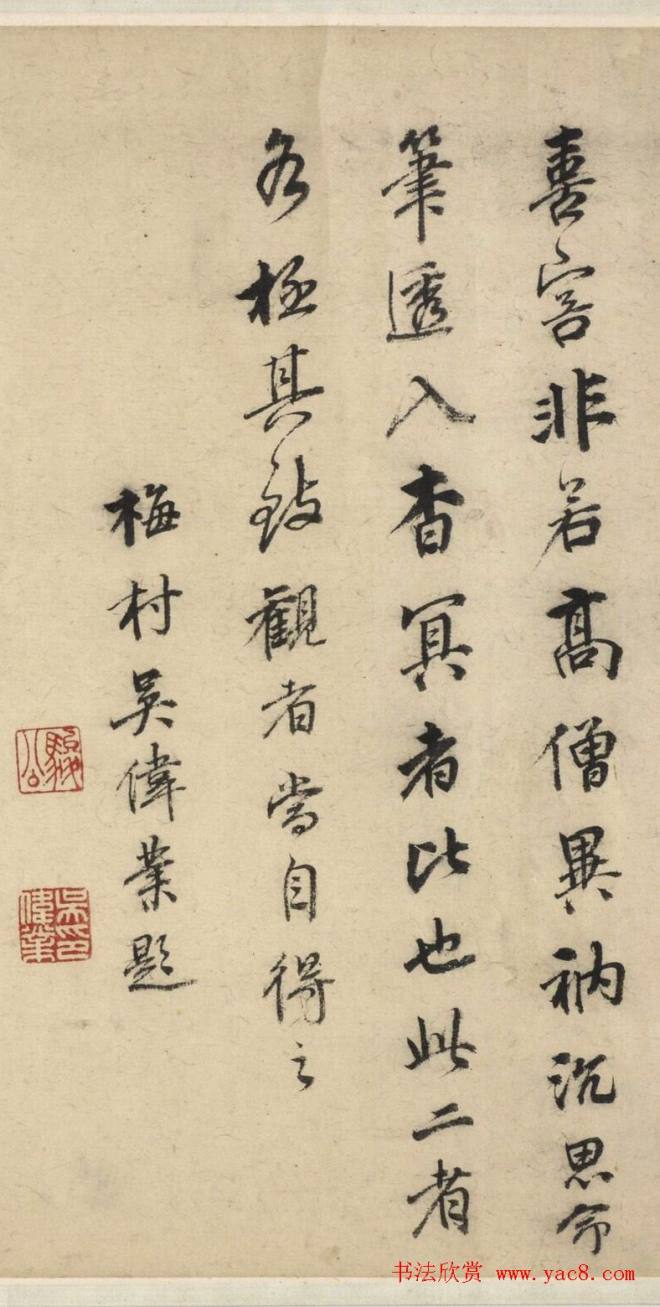 喜害非若高僧異衲沉思命
筆透入杳冥者比也此二者
各極其致觀者當自得之
梅村吳偉業題
駿公
吳偉業印
书法欣赏 www.yac8.com